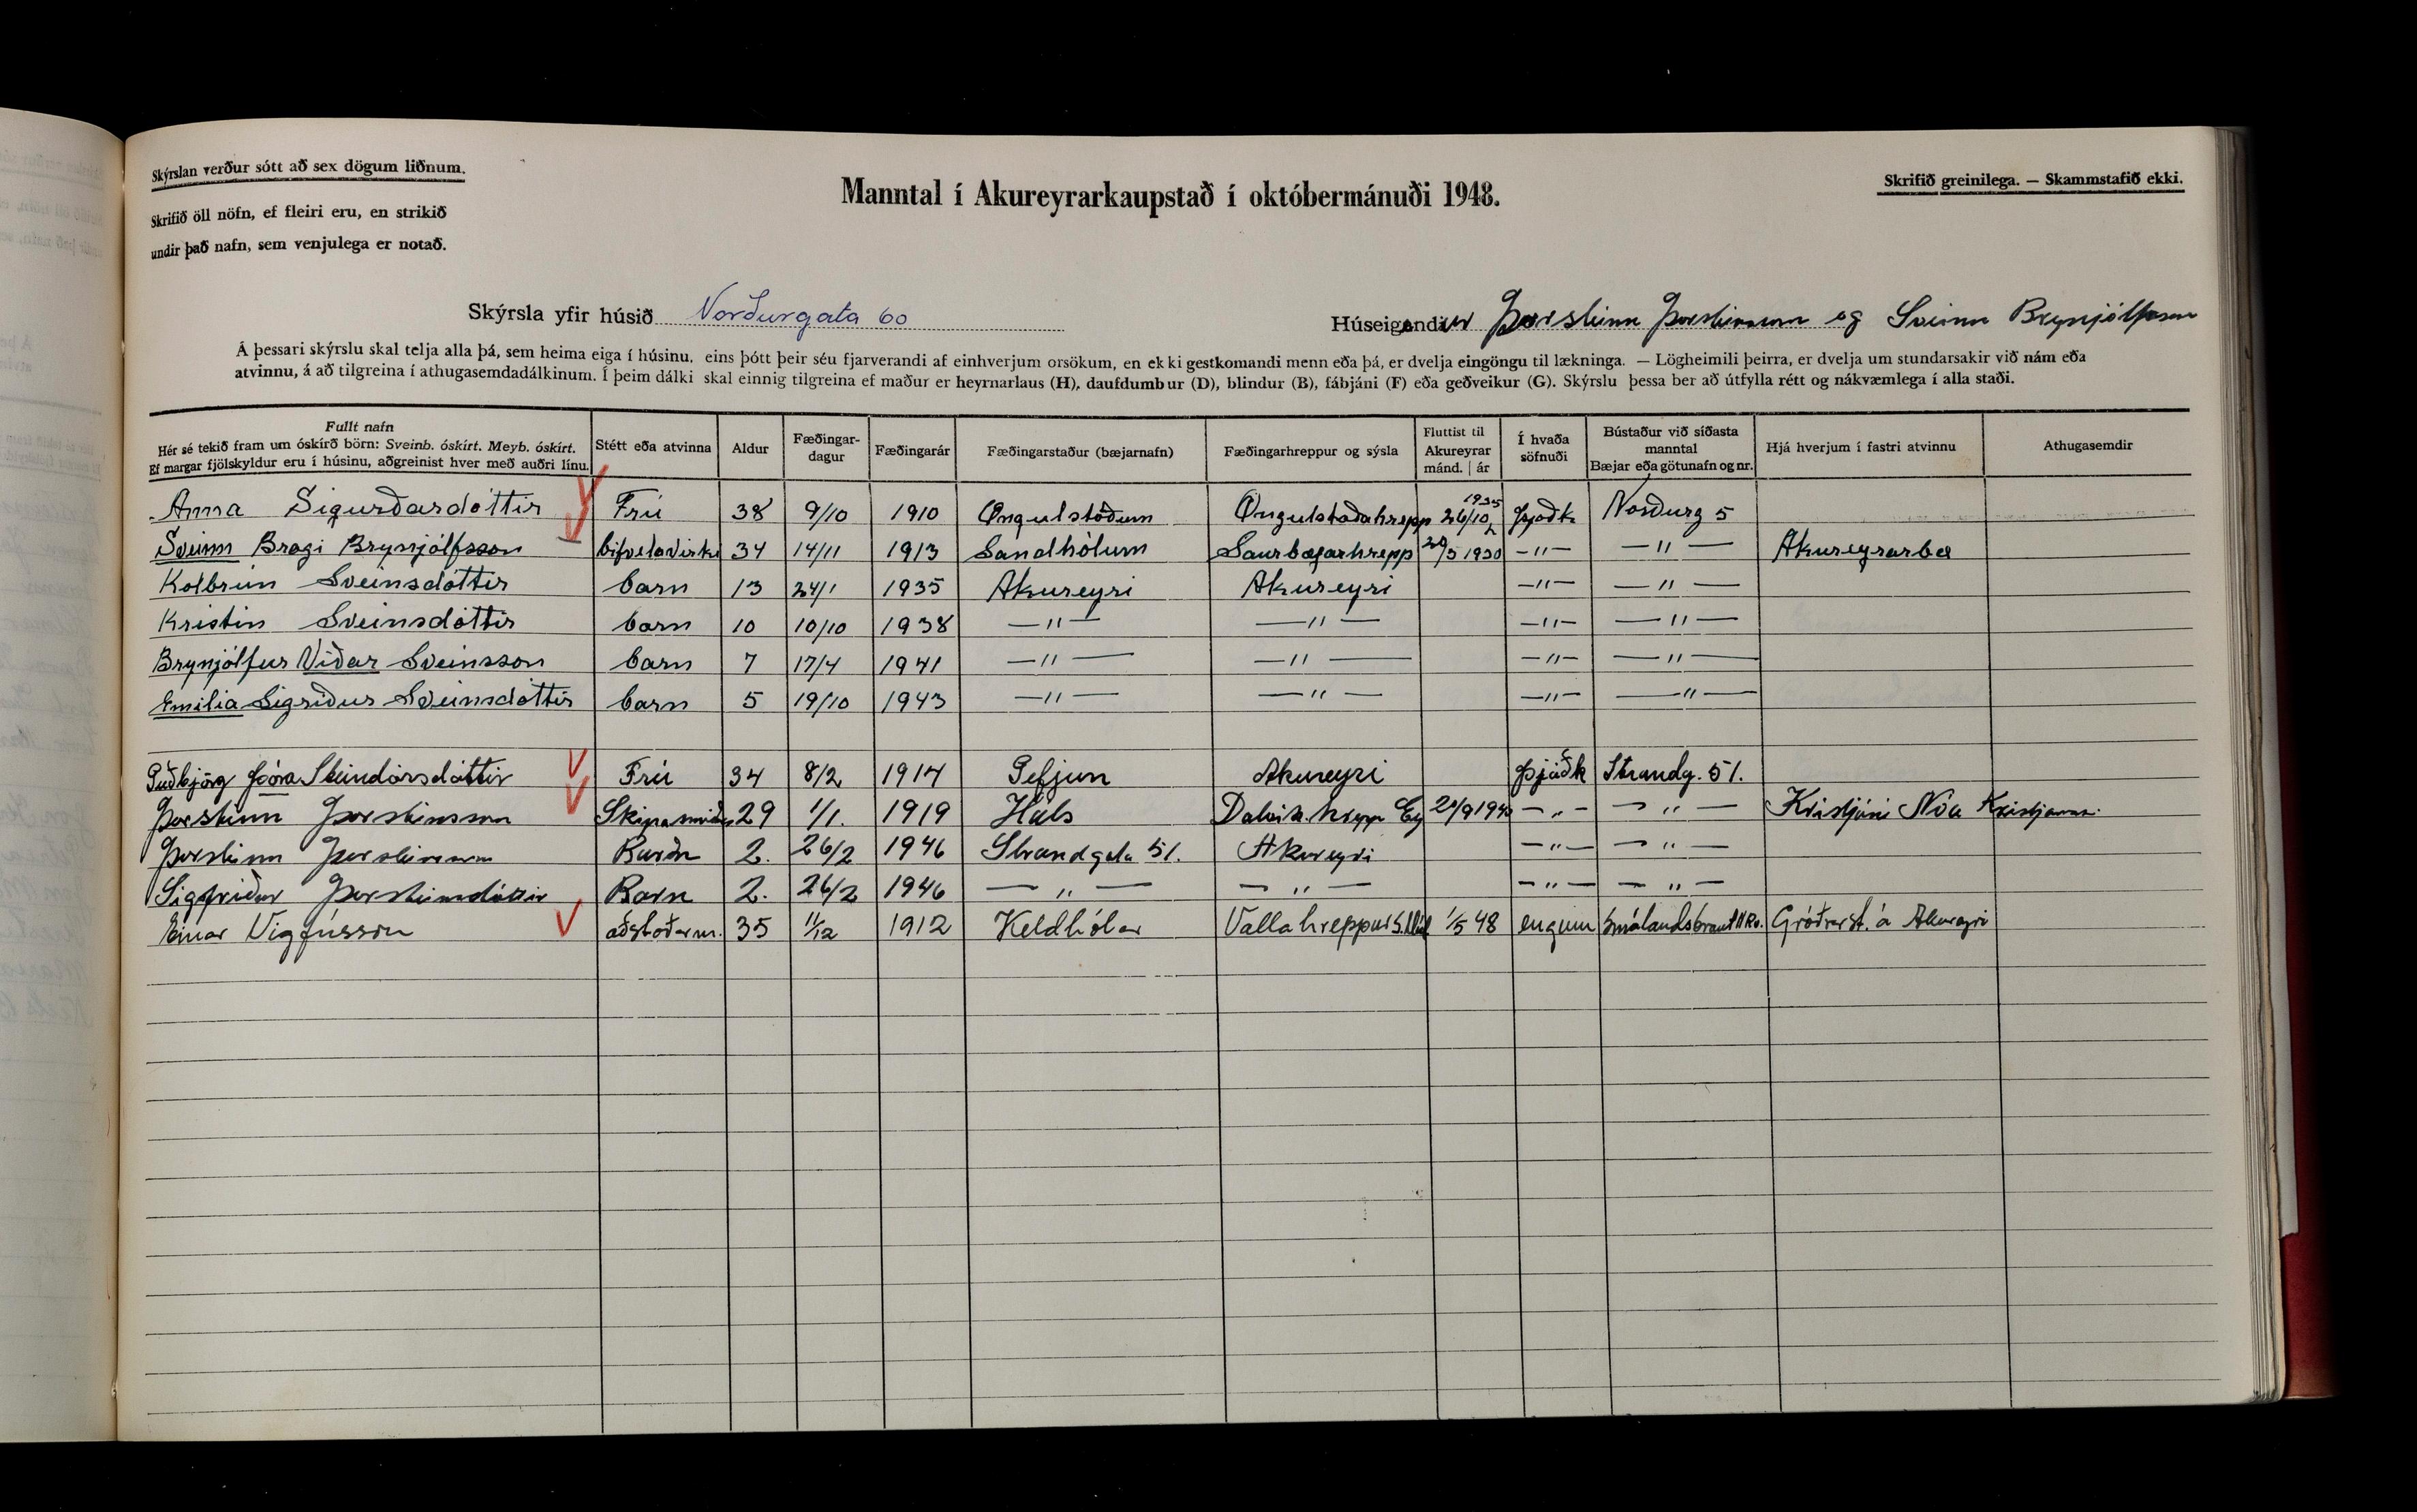 Skýrslan verður sótt að sex dögum liðnum.
Skrifið öll nöfn, ef fleiri eru, en strikið
undir það nafn, sem venjulega er notað.
Manntal í Akureyrarkaupstað í októbermánuði 1948.
Skrifið greinilega. — Skammstafið ekki.
Skýrsla yfir húsið Norðurgata 60
Húseigendur Þorsteinn Þorsteinsson og Sveinn Brynjólfsson
Á þessari skýrslu skal telja alla þá, sem heima eiga í húsinu, eins þótt þeir séu fjarverandi af einhverjum orsökum, en ekki gestkomandi menn eða þá, er dvelja eingöngu til lækninga. — Lögheimili þeirra, er dvelja um stundarsakir við nám eða
atvinnu, á að tilgreina í athugasemdadálkinum. Í þeim dálki skal einnig tilgreina ef maður er heyrnarlaus (H), daufdumbur (D), blindur (B), fábjáni (F) eða geðveikur (G). Skýrslu þessa ber að útfylla rétt og nákvæmlega í alla staði.
Fullt nafn
Hér sé tekið fram um óskírð börn: Sveinb. óskírt. Meyb. óskírt.
Ef margar fjölskyldur eru í húsinu, aðgreinist hver með auðri línu.
Stétt eða atvinna
Aldur
Fæðingar-
dagur
Fæðingarár
Fæðingarstaður (bæjarnafn)
Fæðingarhreppur og sýsla
Fluttist til
Akureyrar
mánd. | ár
Í hvaða
söfnuði
Bústaður við síðasta
manntal
Bæjar eða götunafn og nr.
Hjá hverjum í fastri atvinnu
Athugasemdir
Anna Sigurðardóttir Frú 38 9/10 1910 Öngulstöðum Öngulstaðahrepp 26/10 1935 Þjoðk Norðurg 5
Sveinn Bragi Brynjólfsson bifvelavirki 34 14/11 1913 Sandhólum Saurbæjarhrepp 20/5 1930 —"— —"— Akureyrarbæ
Kolbrún Sveinsdóttir barn 13 24/1 1935 Akureyri Akureyri —"— —"—
Kristín Sveinsdóttir barn 10 10/10 1938 —"— —"— —"— —"—
Brynjólfur Viðar Sveinsson barn 7 17/4 1941 —"— —"— —"— —"—
Emilía Sigríður Sveinsdóttir barn 5 19/10 1943 —"— —"— —"— —"—
Guðbjörg Þóra Steindórsdóttir Frú 34 8/2 1914 Gefjun Akureyri Þjóðk Strandg. 51.
Þorsteinn Þorsteinsson Skipasmiður 29 1/1. 1919 Háls Dalvík.hrepp Ey 1940 —"— —"— Kristjáni Nóa Kristjánss.
Þorsteinn Þorsteinsson Barn 2. 26/2 1946 Strandgata 51. Akureyri —"— —"—
Sigfríður Þorsteinsdóttir Barn 2. 26/2 1946 —"— —"— —"— —"—
Einar Vigfússon aðstoðarm. 35 11/12 1912 Keldhólar Vallahreppur S.Múl 1/5 48 engum Smálandsbraut 11 Rv. Gróðrarst. á Akureyri